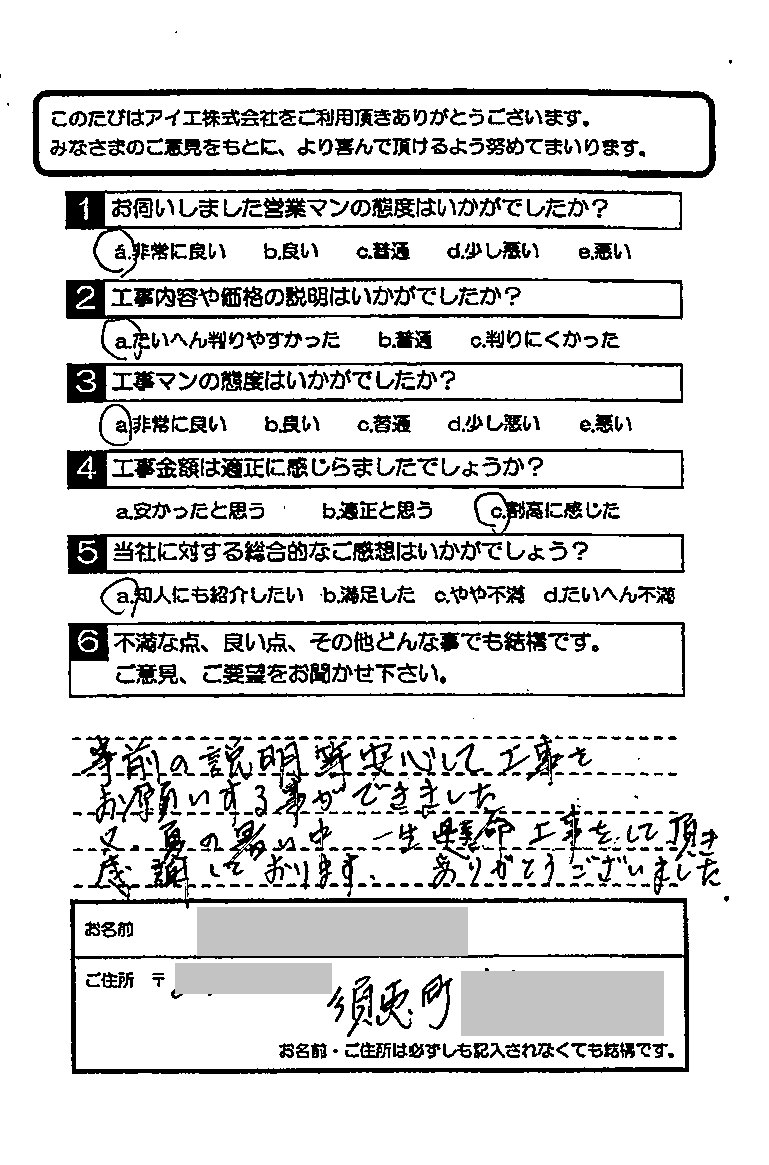 このたびはアイエ株式会社をご利用頂きありがとうございます。
みなさまのご意見をもとに、より喜んで頂けるよう努めてまいります。
1 お伺いしました営業マンの態度はいかがでしたか?
a.非常に良い b.良い c.普通 d.少し悪い e.悪い
2 工事内容や価格の説明はいかがでしたか?
a.たいへん判りやすかった b.普通 c.判りにくかった
3 工事マンの態度はいかがでしたか?
a.非常に良い b.良い c.普通 d.少し悪い e.悪い
4 工事金額は適正に感じらましたでしょうか?
a.安かったと思う b.適正と思う c.割高に感じた
5 当社に対する総合的なご感想はいかがでしょう?
a.知人にも紹介したい b.満足した c.やや不満 d.たいへん不満
6 不満な点、良い点、その他どんな事でも結構です。
ご意見、ご要望をお聞かせ下さい。
事前の説明等安心して工事を
お願いする事ができました
又、夏の暑い中 一生懸命工事をして頂き
感謝しております、 ありがとうございました
お名前
ご住所 〒
須恵町
お名前・ご住所は必ずしも記入されなくても結構です。